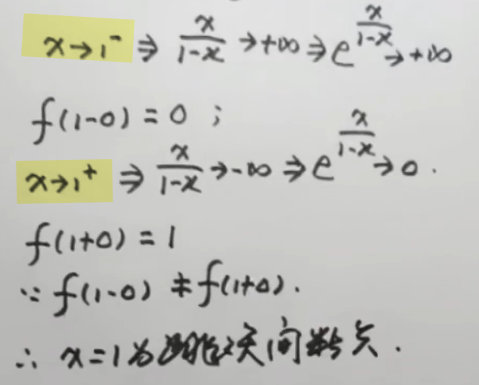 x→1⁻ ⇒ x/(1-x) →+∞ ⇒ e^(x/(1-x)) →+∞
f(1-0) = 0 ;
x→1⁺ ⇒ x/(1-x) →-∞ ⇒ e^(x/(1-x)) →0.
f(1+0) = 1
∵ f(1-0) ≠ f(1+0).
∴ x=1为跳跃间断点.